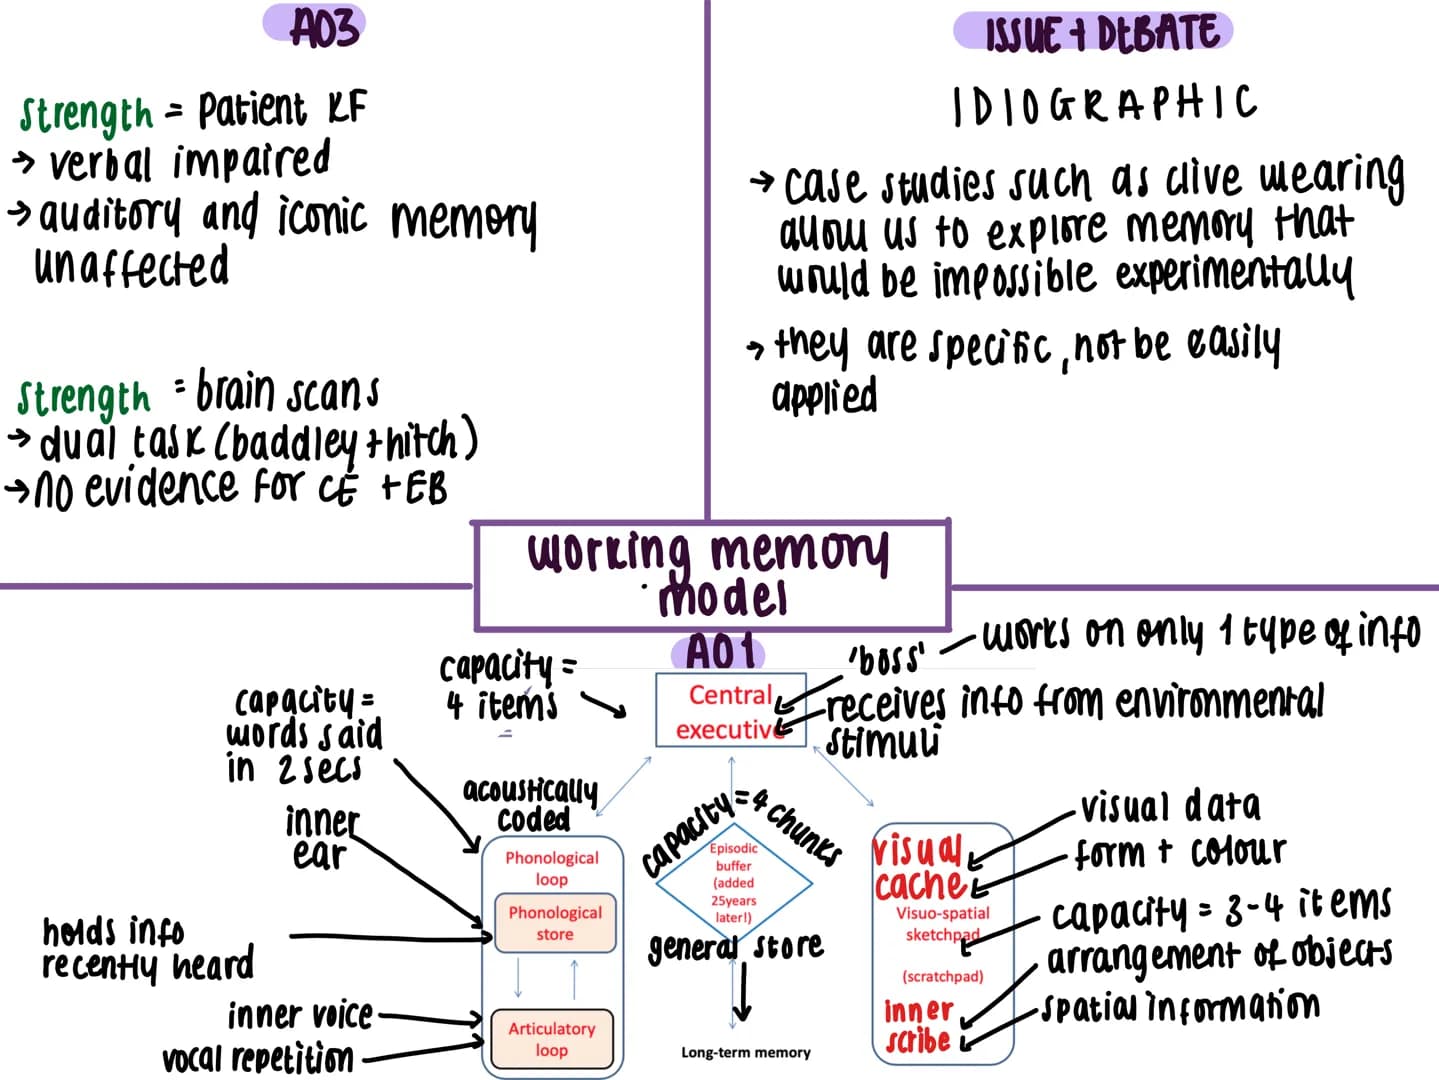 AO3
Strength = Patient KF
→ verbal impaired
→ auditory and iconic memory
unaffected
Strength = brain scans
→ dual task (baddley + hitch)
→ no evidence for CE + EB
ISSUE + DEBATE
IDIOGRAPHIC
→ case studies such as clive wearing
allow us to explore memory that
would be impossible experimentally
→ they are specific, not be easily
applied
working memory
model
AO1
capacity =
4 items
'boss'
works on only 1 type of info
Central
executive
receives info from environmental
stimuli
capacity =
words said
in 2 secs
acoustically
coded
inner
ear
Phonological
loop
Phonological
store
holds info
recently heard
inner voice
vocal repetition
Articulatory
loop
capacity = 4 chunks
Episodic
buffer
(added
25years
later!)
general store
Long-term memory
visual
cache
visual data
form + colour
Visuo-spatial
sketchpad
(scratchpad)
capacity = 3-4 items
inner
scribe
arrangement of objects
spatial information